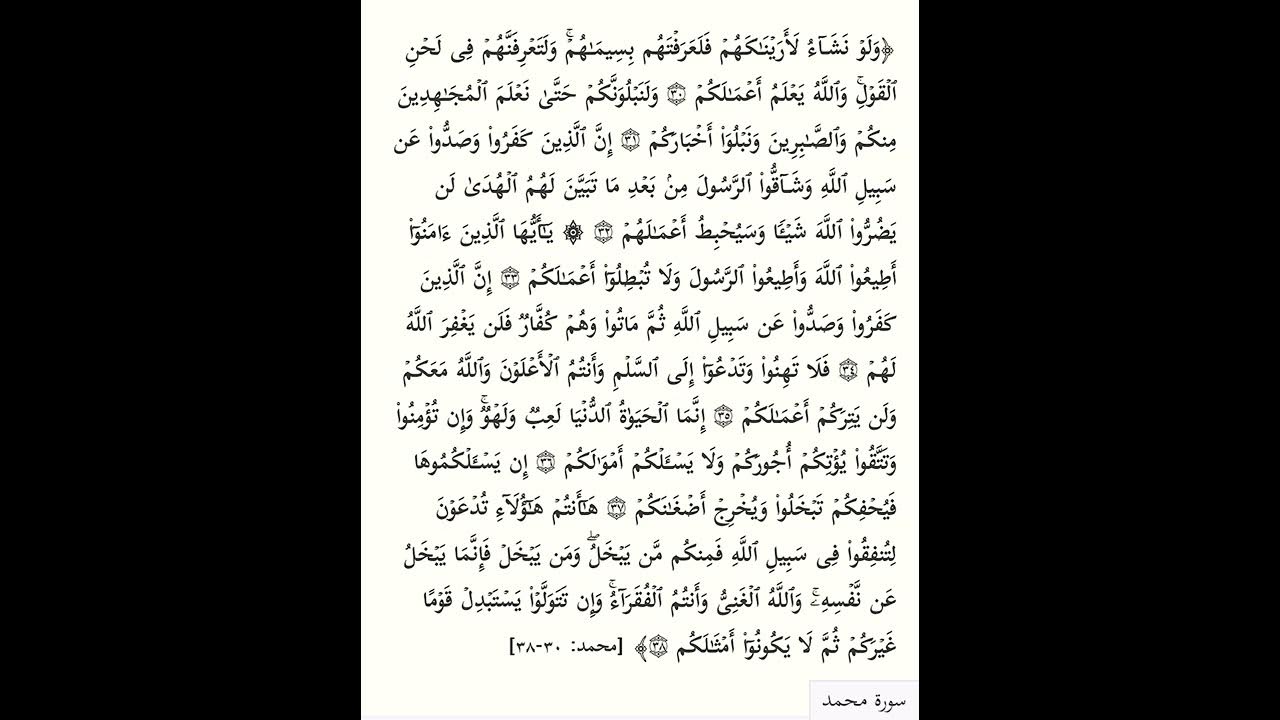 ﴿وَلَوۡ نَشَآءُ لَأَرَيۡنَٰكَهُمۡ فَلَعَرَفۡتَهُم بِسِيمَٰهُمۡۚ وَلَتَعۡرِفَنَّهُمۡ فِي لَحۡنِ
ٱلۡقَوۡلِۚ وَٱللَّهُ يَعۡلَمُ أَعۡمَٰلَكُمۡ ٣٠ وَلَنَبۡلُوَنَّكُمۡ حَتَّىٰ نَعۡلَمَ ٱلۡمُجَٰهِدِينَ
مِنكُمۡ وَٱلصَّٰبِرِينَ وَنَبۡلُوَاْ أَخۡبَارَكُمۡ ٣١ إِنَّ ٱلَّذِينَ كَفَرُواْ وَصَدُّواْ عَن
سَبِيلِ ٱللَّهِ وَشَآقُّواْ ٱلرَّسُولَ مِنۢ بَعۡدِ مَا تَبَيَّنَ لَهُمُ ٱلۡهُدَىٰ لَن
يَضُرُّواْ ٱللَّهَ شَيۡـٔٗا وَسَيُحۡبِطُ أَعۡمَٰلَهُمۡ ٣٢ ۞ يَٰٓأَيُّهَا ٱلَّذِينَ ءَامَنُوٓاْ
أَطِيعُواْ ٱللَّهَ وَأَطِيعُواْ ٱلرَّسُولَ وَلَا تُبۡطِلُوٓاْ أَعۡمَٰلَكُمۡ ٣٣ إِنَّ ٱلَّذِينَ
كَفَرُواْ وَصَدُّواْ عَن سَبِيلِ ٱللَّهِ ثُمَّ مَاتُواْ وَهُمۡ كُفَّارٞ فَلَن يَغۡفِرَ ٱللَّهُ
لَهُمۡ ٣٤ فَلَا تَهِنُواْ وَتَدۡعُوٓاْ إِلَى ٱلسَّلۡمِ وَأَنتُمُ ٱلۡأَعۡلَوۡنَ وَٱللَّهُ مَعَكُمۡ
وَلَن يَتِرَكُمۡ أَعۡمَٰلَكُمۡ ٣٥ إِنَّمَا ٱلۡحَيَوٰةُ ٱلدُّنۡيَا لَعِبٞ وَلَهۡوٞۚ وَإِن تُؤۡمِنُواْ
وَتَتَّقُواْ يُؤۡتِكُمۡ أُجُورَكُمۡ وَلَا يَسۡـَٔلۡكُمۡ أَمۡوَٰلَكُمۡ ٣٦ إِن يَسۡـَٔلۡكُمُوهَا
فَيُحۡفِكُمۡ تَبۡخَلُواْ وَيُخۡرِجۡ أَضۡغَٰنَكُمۡ ٣٧ هَٰٓأَنتُمۡ هَٰٓؤُلَآءِ تُدۡعَوۡنَ
لِتُنفِقُواْ فِي سَبِيلِ ٱللَّهِ فَمِنكُم مَّن يَبۡخَلُۖ وَمَن يَبۡخَلۡ فَإِنَّمَا يَبۡخَلُ
عَن نَّفۡسِهِۦۚ وَٱللَّهُ ٱلۡغَنِيُّ وَأَنتُمُ ٱلۡفُقَرَآءُۚ وَإِن تَتَوَلَّوۡاْ يَسۡتَبۡدِلۡ قَوۡمًا
غَيۡرَكُمۡ ثُمَّ لَا يَكُونُوٓاْ أَمۡثَٰلَكُم ٣٨﴾ [محمد: ٣٠-٣٨]
سورة محمد